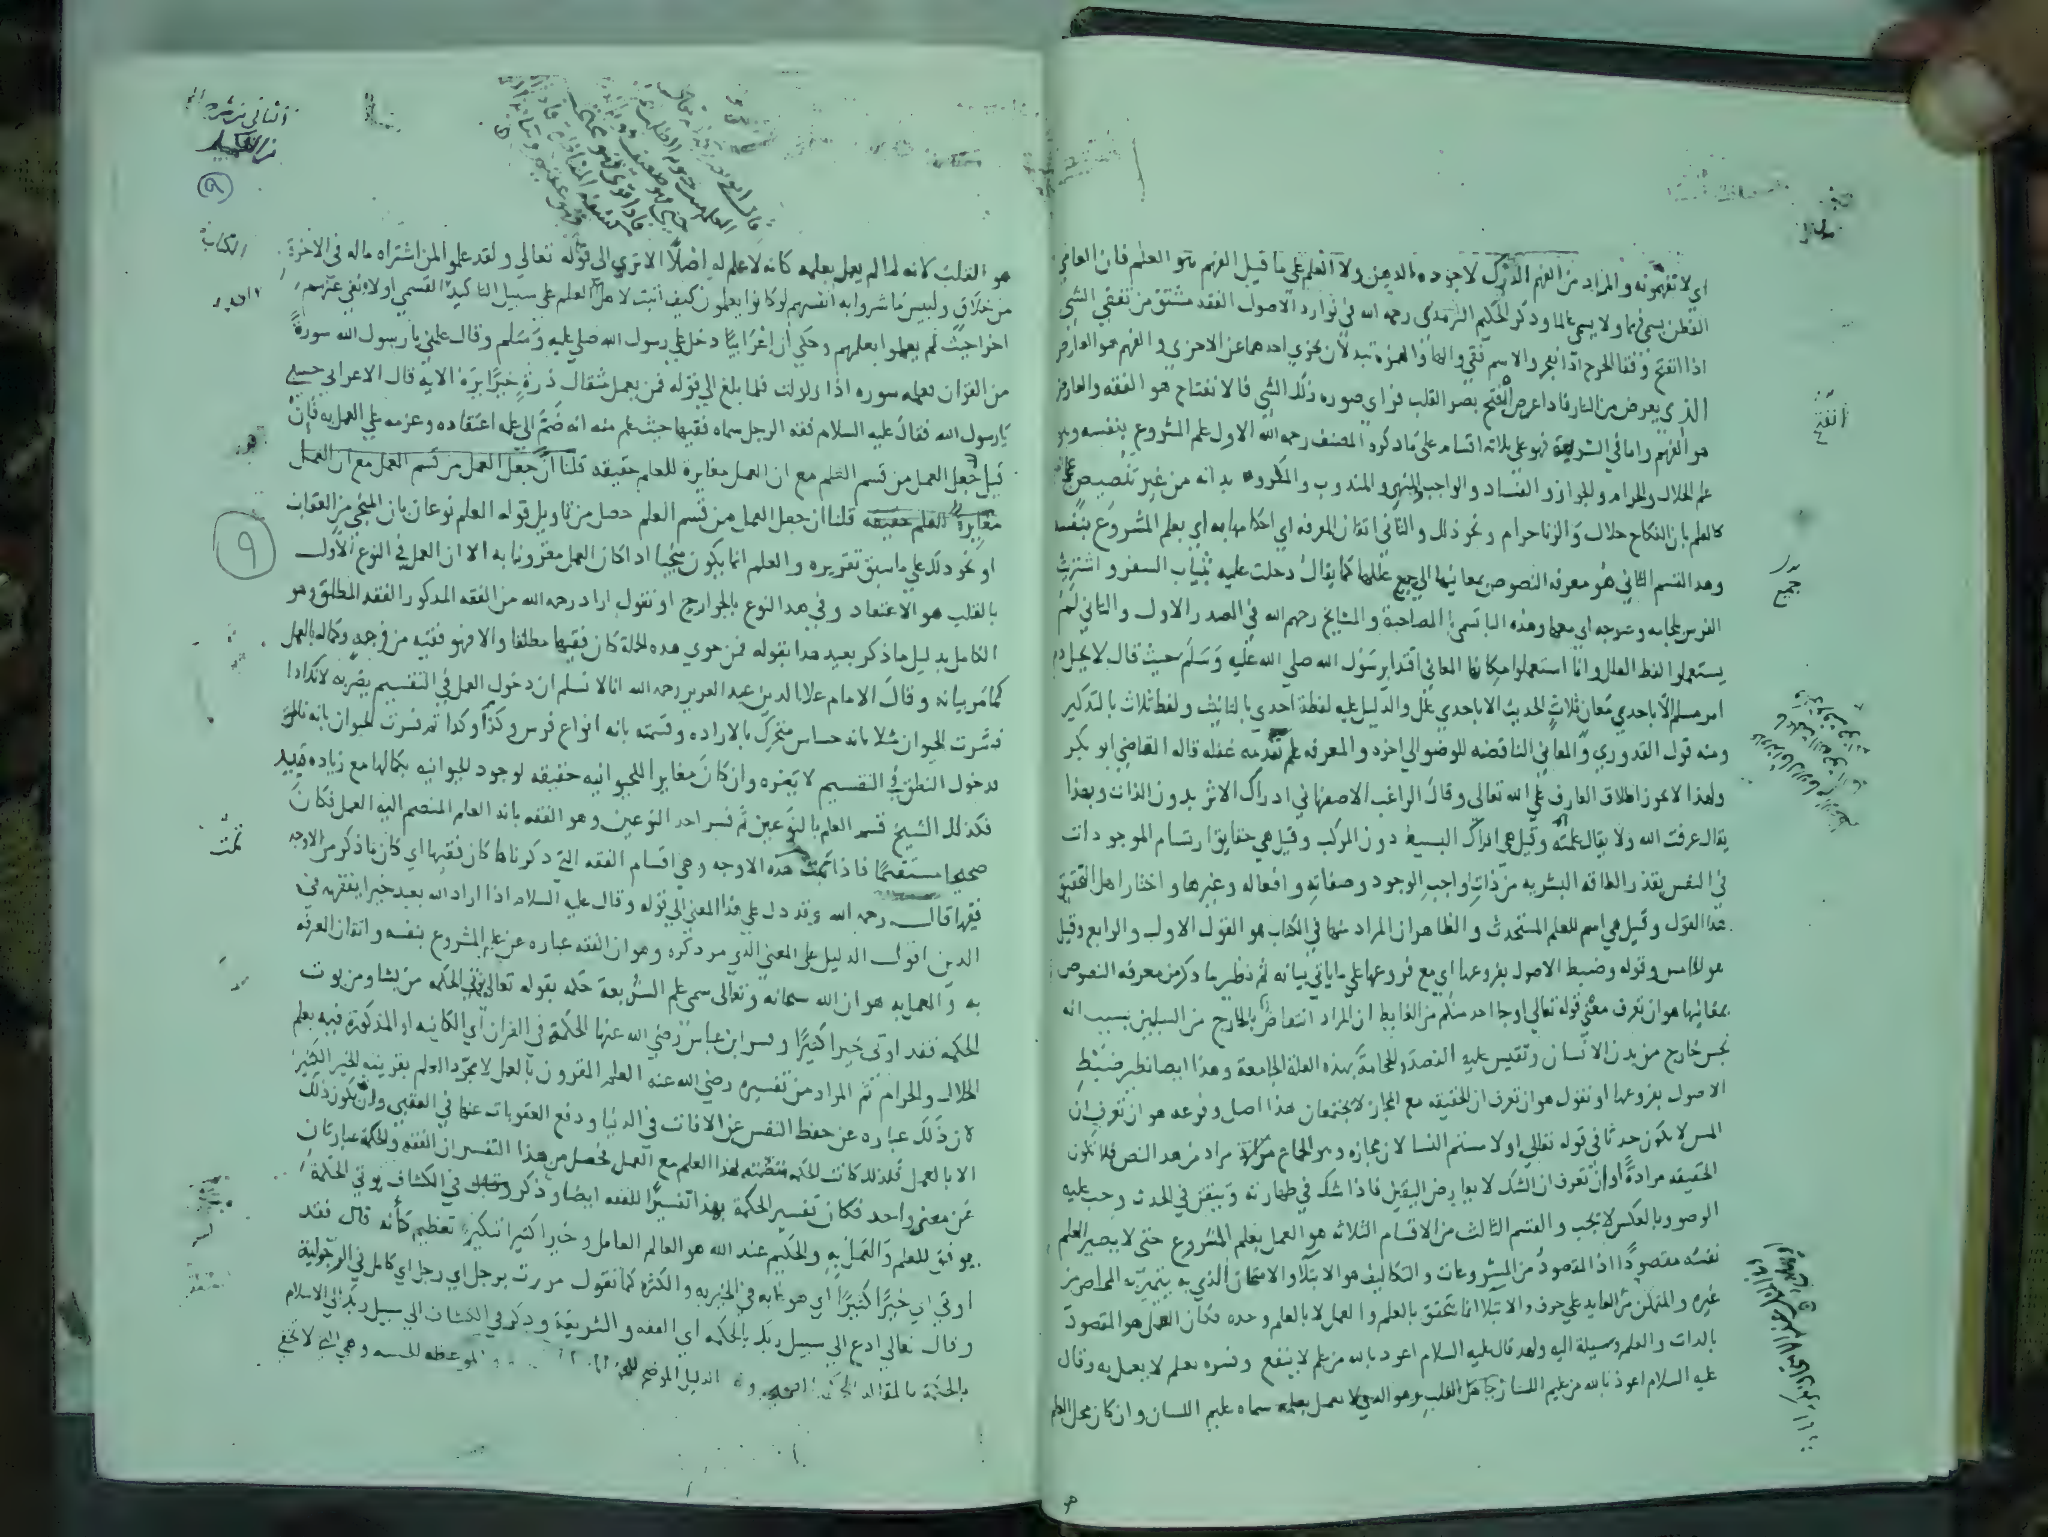 اي لا تفهمونه والمراد من الفهم الدرك لا جوده الذهن ولا العلم على ما قيل الفهم هو العلم فان العامي
الفطن يسمى فهما ولا يسمى عالما وذكر الحكيم الترمذى رحمه الله في نوادر الاصول الفقه مشتق من تفقي الشي
اذا انفتح وفقا الجرح اذا انفجر والاسم فقي والهاء والهمزة تبدلان تجزي احدهما عن الاخري والفهم هو العارض
الذي يعرض من النار فاذا عرض انفتح بصر القلب فراي صوره ذلك الشي فالانفتاح هو الفقه والعارض
هو الفهم واما في الشريعة فهو على ثلاثة اقسام على ما ذكره المصنف رحمه الله الاول علم المشروع بنفسه وهو
علم الحلال والحرام والجواز والفساد والواجب والمندوب والمكروه بذاته من غير تنصيص
كالعلم بان النكاح حلال والزنا حرام ونحو ذلك والثاني اتقان المعرفه اي احكامها به اي بعلم المشروع بنفسه
وهذا القسم الثاني هو معرفه النصوص بمعانيها اي مع عللها كما يقال دخلت عليه بثياب السفر واشتريت
الفرس بلجامه وسرجه اي معهما وهذه الباء تسمى باء المصاحبة والمشايخ رحمهم الله في الصدر الاول والثاني لم
يستعملوا لفظ العلل وانما استعملوا مكانها المعاني اقتدا برسول الله صلى الله عليه وسلم حيث قال لا يحل دم
امرء مسلم الا باحدي معان ثلاث الحديث الا باحدي علل والدليل عليه لفظة احدي بالتانيث ولفظ ثلاث بالتذكير
ومنه قول القدوري والمعاني الناقضه للوضو الى اخره والمعرفه علم تقدمه غفله قاله القاضي ابو بكر
ولهذا لا يجوز اطلاق العارف على الله تعالى وقال الراغب الاصفهاني ادراك الاثر بدون الذات ولهذا
يقال عرفت الله ولا يقال علمته وقيل هي ادراك البسيط دون المركب وقيل هي حقايق ارتسام الموجودات
في النفس بقدر الطاقه البشريه من ذات واجب الوجود وصفاته وافعاله وغيرها واختار اهل التحقيق
هذا القول وقيل هي اسم للعلم المستحدث والظاهر ان المراد منها في الكتاب هو القول الاول والرابع وقيل
هو الخامس وقوله وضبط الاصول بفروعها اي مع فروعها على ما ياتي بيانه ثم نظير ما ذكر من معرفه النصوص
بمعانيها هو ان تعرف معني قوله تعالى او جا احد منكم من الغايط ان المراد انتقاض بالخارج من السبيلين بسبب انه
نجس خارج من بدن الانسان وتقيس عليه الفصد والحجامة بهذه العلة الجامعة وهذا ايضا نظير ضبط
الاصول بفروعها او نقول هو ان تعرف ان الحقيقه مع المجاز لا يجتمعان هذا اصل وفرعه هو ان تعرف ان
المس لا يكون حدثا في قوله تعالى او لامستم النسا لان مجازه وهو الجماع مراد من هذا النص فلا تكون
الحقيقه مرادة او ان تعرف ان الشك لا يعارض اليقين فاذا شك في طهارته وتيقن في الحدث وجب عليه
الوضو وبالعكس لا يجب والقسم الثالث من الاقسام الثلاثه هو العمل بعلم المشروع حتى لا يصير العلم
نفسه مقصودا اذ المقصود من المشروعات والتكاليف هو الابتلا والامتحان الذي به يتميز به المخلص من
غيره والمتمكن من العابد على حرف والابتلا انما يتحقق بالعلم والعمل لا بالعلم وحده فكان العمل هو المقصود
بالذات والعلم وسيلة اليه ولهذا قال عليه السلام اعوذ بالله من علم لا ينفع وفسره بعلم لا يعمل به وقال
عليه السلام اعوذ بالله من عليم اللسان جاهل القلب وهو الذي لا يعمل بعلمه سماه عليم اللسان وان كان محل العلم
هو القلب لانه لما لم يعمل بعلمه كانه لا علم له اصلا الا تري الى قوله تعالى ولقد علموا لمن اشتراه ماله في الاخرة
من خلاق ولبيس ما شروا به انفسهم لو كانوا يعلمون كيف اثبت لاهل العلم على سبيل التاكيد القسمي اولا ونفي عنهم
اخرا حيث لم يعملوا بعلمهم وحكي ان اعرابيا دخل على رسول الله صلى عليه وسلم وقال علمني يا رسول الله سورة
من القران فعلمه سوره اذا زلزلت فلما بلغ الى قوله فمن يعمل مثقال ذرة خيرا يره الايه قال الاعرابي حسبي
يا رسول الله فقال عليه السلام فقه الرجل سماه فقيها حيث علم منه انه ضم الى علمه اعتقاده وعزمه علي العمل به فان
قيل جعل العمل من قسم العلم مع ان العمل مغايرة للعلم حقيقه قلنا ان جعل العمل من قسم العمل مع ان العمل
مغايرة العلم حقيقه قلنا ان جعل العمل من قسم العلم حصل من تاويل قوله العلم نوعان بان المنجي من العقاب
او نحو ذلك على ما سبق تقريره والعلم انما يكون منجيا اذا كان العمل مقرونا به الا ان العمل في النوع الاول
بالقلب هو الاعتقاد وفي هذا النوع بالجوارح او نقول اراد رحمه الله من الفقه المذكور الفقه المطلق وهو
الكامل بدليل ما ذكر بعيد هذا بقوله فمن حوي هذه الجملة كان فقيها مطلقا والا فهو فقيه من وجه وكماله بالعمل
كما مر بيانه وقال الامام علا الدين عبد العزيز رحمه الله انا لا نسلم ان دخول العمل في التقسيم يضر به لانك اذا
فسرت الحيوان مثلا بانه حساس متحرك بالاراده وقسمته بانه انواع فرس وكذا وكذا ثم فسرت الحيوان بانه
فدخول النطق في التقسيم لا يضره وان كان مغايرا للحيوانيه حقيقه لوجود الحيوانيه بكمالها مع زياده قيد
فكذلك الشيخ قسم العلم بالنوعين ثم فسر احد النوعين وهو الفقه بانه العلم المنضم اليه العمل فكان
صحيحا مستقيما فاذا تمت هذه الاوجه وهي اقسام الفقه التي ذكرناها كان فقيها اي كان ما ذكر من الاوجه
فقها قال رحمه الله وقد دل على هذا المعني الى قوله وقال عليه السلام اذا اراد الله بعبد خيرا يفقهه في
الدين اقول الدليل على المعني الذي مر ذكره وهو ان الفقه عباره عن علم المشروع بنفسه واتقان المعرفه
به والعمل به هو ان الله سبحانه وتعالى سمى علم الشريعة حكمه بقوله تعالى يؤتي الحكمه من يشا ومن يوت
الحكمه فقد اوتي خيرا كثيرا وفسر ابن عباس رضي الله عنهما الحكمة في القران اي الكائنه او المذكورة فيه بعلم
الحلال والحرام ثم المراد من تفسيره رضي الله عنه العلم المقرون بالعمل لا مجرد العلم بقرينه الخير الكثير
لان ذلك عباره عن حفظ النفس عن الافات في الدنيا ودفع العقوبات عنها في العقبي ولن يكون ذلك
الا بالعمل فلذلك كانت الحكمه متضمنه لهذا العلم مع العمل فحصل من هذا التفسير ان الفقه والحكمة عبارتان
عن معني واحد فكان تفسير الحكمة بهذا تفسيرا للفقه ايضا وذكر في الكشاف يوتي الحكمة
يوفق للعلم والعمل به والحكيم عند الله هو العالم العامل وخيرا كثيرا تنكير تعظيم كأنه قال فقد
اوتي اي خيرا كثيرا اي هو نهايه في الخيريه والكثره كما نقول مررت برجل اي رجل اي كامل في الرجولية
وقال تعالى ادع الى سبيل ربك بالحكمه اي الفقه والشريعة وذكر في الكشاف الى سبيل ربك الى الاسلام
بالحكمة بالمقالة وهو الدليل الموضح للحق والموعظه الحسنه وهي التي لا تخفي
الثاني من شرح
٩
الكتاب
٩
تمت
جميع